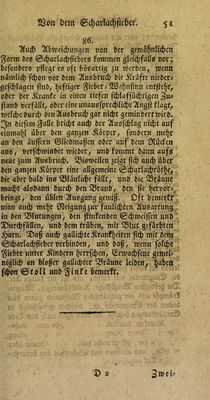 Von dem Scharlachfieber. 51
86.
Auch Abweichungen von der gewöhnlichen
Form des Scharlachfiebers kommen gleichfalls vor;
besonders pflegt es oft bösartig zu werden, wenn
nämlich schon vor dem Ausbruch die Kräfte nieder-
geschlagen sind, heftiger Fieber, Wahnsinn entsteht,
oder der Kranke in einen tiefen schlafsüchtigen Zu-
stand verfällt, oder eine unaussprechliche Angst klagt,
welche durch den Ausbruch gar nicht gemindert wird.
In diesem Fall bricht auch der Ausschlag nicht auf
einmahl über den ganzen Körper, sondern mehr
an den äußern Gliedmaßen oder auf dem Rücken
aus, verschwindet wieder, und kommt dann aufs
neue zum Ausbruch. Bisweilen zeigt sich auch über
den ganzen Körper eine allgemeine Scharlachröthe,
die aber bald ins Bläuliche fällt, und die Bräune
macht alsdann durch den Brand, den sie hervor-
bringt, den üblen Ausgang gewiß. Oft bemerkt
man auch mehr Neigung zur faulichten Ausartung,
in den Blutungen, den stinkenden Schweissen und
Durchfällen, und dem trüben, mit Blut gefärbten
Harn. Daß auch gallichte Krankheiten sich mit dem
Scharlachfieber verbinden, und daß, wenn solche
Fieber unter Kindern herrschen, Erwachsene gemei-
niglich an bloßer gallichter Bräune leiden, haben
schon Stoll und Finke bemerkt.
D 2 Zwei-